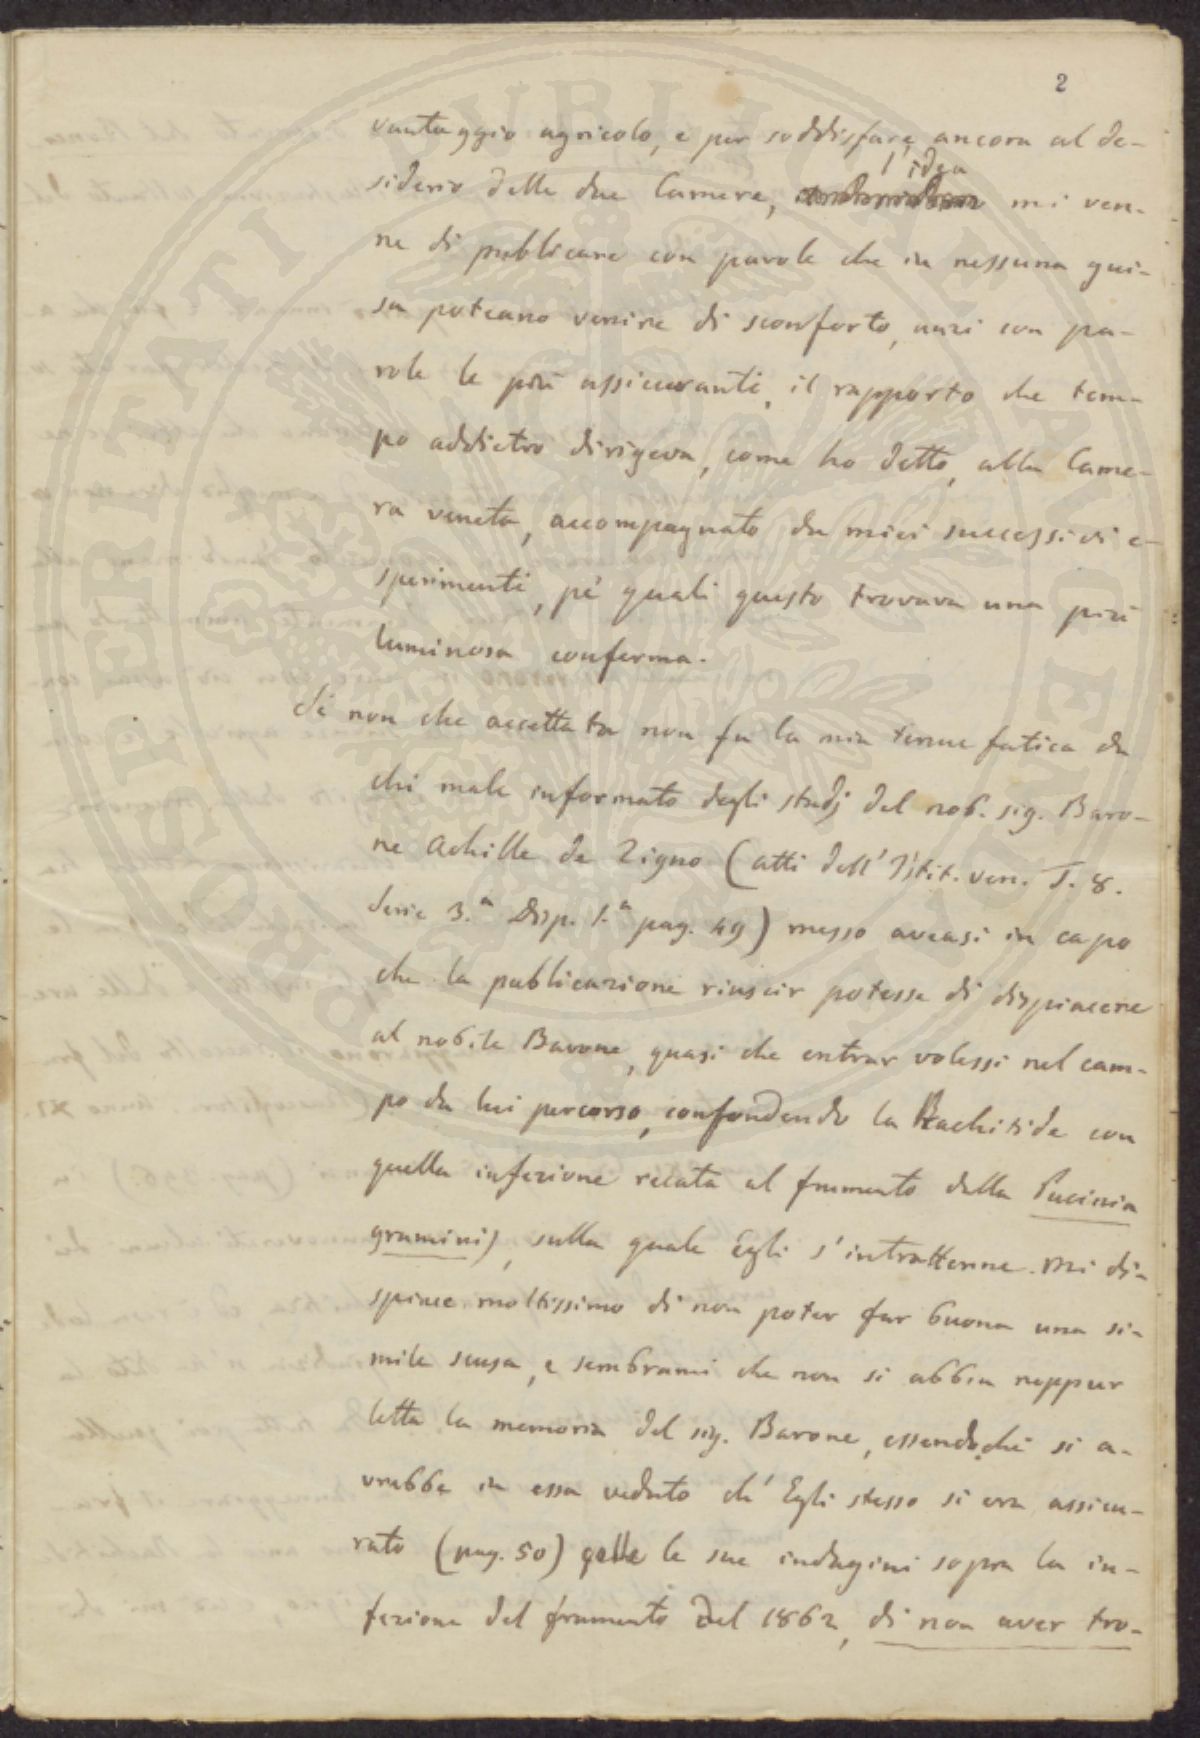 2
vantaggio agricolo, e per soddisfare ancora al de-
l'idea
siderio delle due Camere, mi ven-
ne di publicare con parole che in nessuna gui-
sa poteano venire di sconforto, anzi con pa-
role le più assicuranti, il rapporto che tem-
po addietro dirigeva, come ho detto, alla Came-
ra veneta, accompagnato da miei successivi e-
sperimenti, pe' quali questo trovava una più
luminosa conferma.
Se non che accettata non fu la mia tenue fatica da
chi male informato degli studj del nob. sig. Baro-
ne Achille de Zigno (atti dell'Istit. ven. T. 8.
Serie 3.ª Disp. 1.ª pag. 49) messo aveasi in capo
che la publicazione riuscir potesse di dispiacere
al nobile Barone, quasi che entrar volessi nel cam-
po da lui percorso, confondendo la Rachitide con
quella infezione recata al frumento dalla Pucinia
graminis, sulla quale Egli s'intrattenne. Mi di-
spiace moltissimo di non poter far buona una si-
mile scusa, e sembrami che non si abbia neppur
letta la memoria del sig. Barone, essendochè si a-
vrebbe in essa veduto ch'Egli stesso si era assicu-
rato (pag. 50) colle le sue indagini sopra la in-
fezione del frumento del 1862, di non aver tro-
PROSPERITATI PUBLICAE AUGENDAE